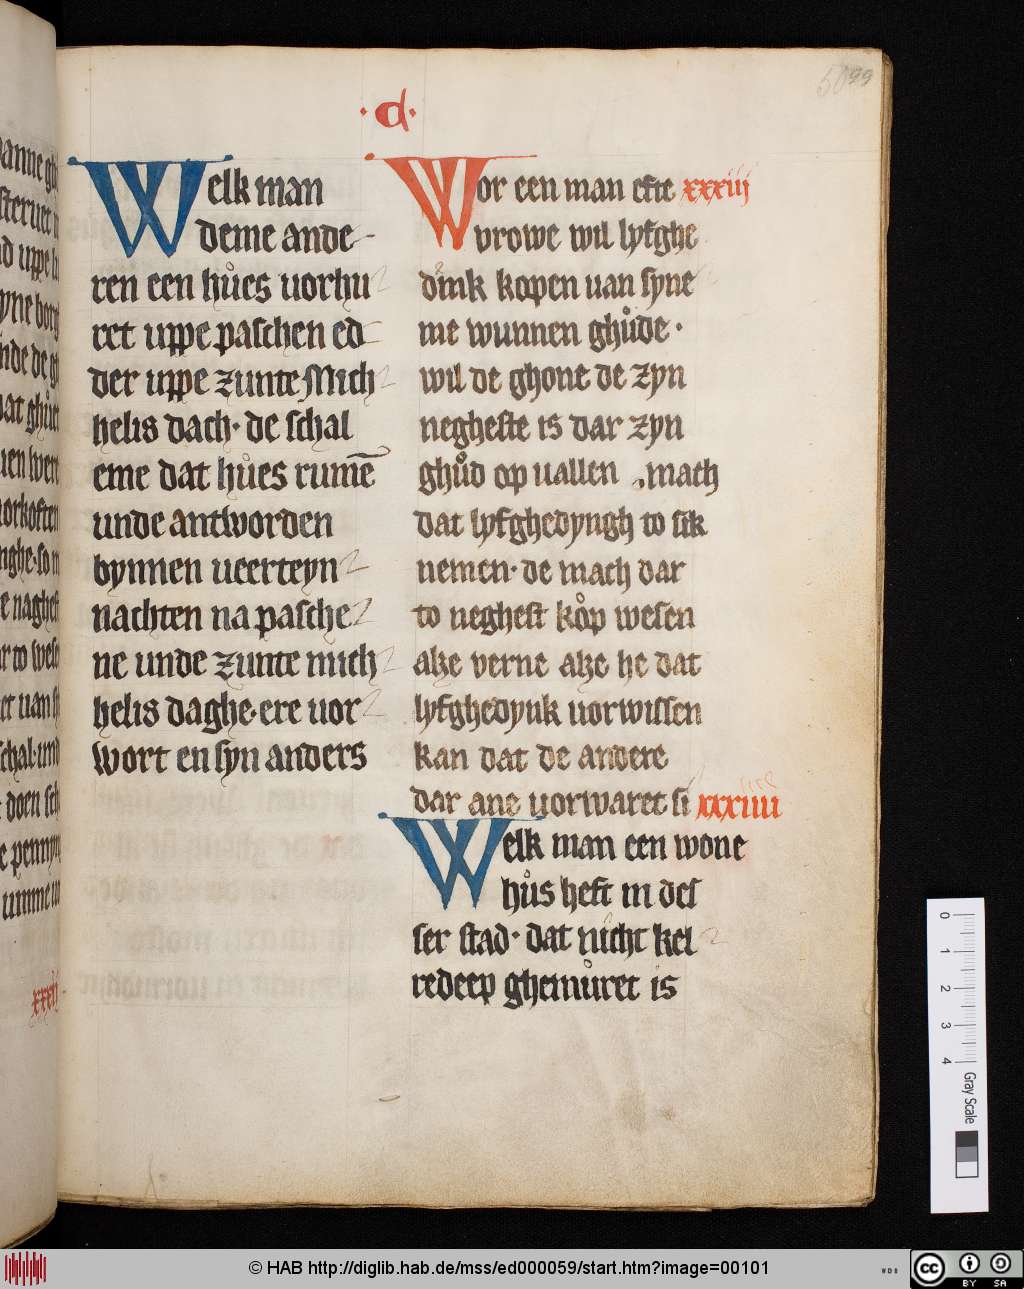 50 99
·d·
Welk man
deme ande-
ren een hůes uorhu
ret uppe paschen ed
der uppe zunte Mich
helis dach· de schal
eme dat hůes rumē
unde antworden
bynnen ueerteyn
nachten na pasche
ne unde zunte mich
helis daghe· ere uor
wort en syn anders
Wor een man efte xxxiij
vrowe wil lyfghe
dink kopen uan syne
me wunnen ghůde·
wil de ghone de zyn
negheste is dar zyn
ghůd op uallen mach
dat lyfghedyngh to sik
nemen· de mach dar
to neghest kǒp wesen
alze verne alze he dat
lyfghedynk uorwissen
kan dat de andere
dar ane uorwaret si xxxiiii
Welk man een wone
hůs heft in des
ser stad· dat nicht kel
redeep ghemůret is
xxxij
0 1 2 3 4
Gray Scale
© HAB http://diglib.hab.de/mss/ed000059/start.htm?image=00101
WDB
cc BY SA